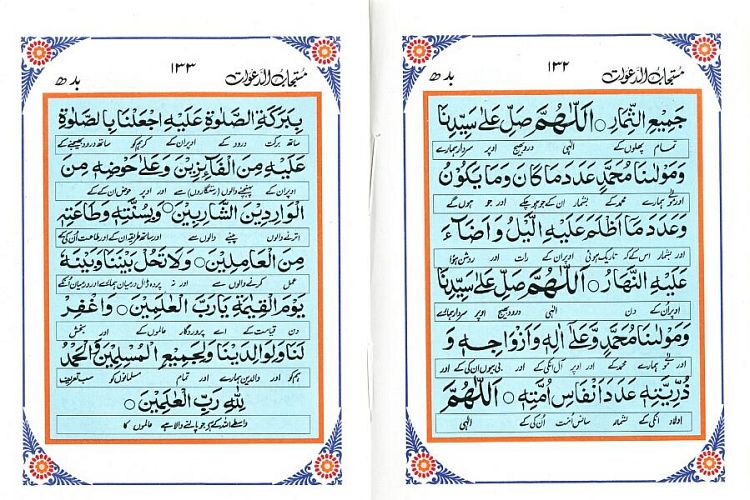 مستجاب الدعوات ۱۳۲ بدھ
جَمِيْعِ الثِّمَارِ ○ اَللّٰهُمَّ صَلِّ عَلٰى سَيِّدِنَا
تمام پھلوں کے الٰہی درود بھیج اوپر سردار ہمارے
وَمَوْلٰىنَا مُحَمَّدٍ عَدَدَ مَا كَانَ وَمَا يَكُوْنُ
اور مولٰی ہمارے محمدؐ کے بشمار ان کے جو ہو چکے اور جو ہوں گے
وَعَدَدَ مَا اَظْلَمَ عَلَيْهِ الَّيْلُ وَاَضَآءَ
اور بشمار اس کے کہ تاریک ہوئی اوپر ان کے رات اور روشن ہوا
عَلَيْهِ النَّهَارُ ○ اَللّٰهُمَّ صَلِّ عَلٰى سَيِّدِنَا
اوپر ان کے دن الٰہی درود بھیج اوپر سردار ہمارے
وَمَوْلٰىنَا مُحَمَّدٍ وَّعَلٰى اٰلِهٖ وَاَزْوَاجِهٖ وَ
اور مولٰی ہمارے محمدؐ کے اور اوپر آل انکی کے اور بی بیوں ان کی کے اور
ذُرِّيَّتِهٖ عَدَدَ اَنْفَاسِ اُمَّتِهٖ ○ اَللّٰهُمَّ
اولاد انکی کے بشمار سانس امت ان کی کے الٰہی
مستجاب الدعوات ۱۳۳ بدھ
بِبَرَكَةِ الصَّلٰوةِ عَلَيْهِ اجْعَلْنَا بِالصَّلٰوةِ
ساتھ برکت درود کے اوپر ان کے کر ہم کو ساتھ درود بھیجنے کے
عَلَيْهِ مِنَ الْفَآئِزِيْنَ وَعَلٰى حَوْضِهٖ مِنَ
اوپر ان کے پہنچنے والوں (رستگاروں) سے اور اوپر حوض ان کے کے
الْوَارِدِيْنَ الشَّارِبِيْنَ ○ وَبِسُنَّتِهٖ وَطَاعَتِهٖ
اترنے والوں پینے والوں سے اور ساتھ طریقہ ان کے اور طاعت ان کی کے
مِنَ الْعَامِلِيْنَ ○ وَلَا تَحُلْ بَيْنَنَا وَبَيْنَهٗ
عمل کرنے والوں سے اور نہ پردہ ڈال درمیان ہمارے اور درمیان انکے
يَوْمَ الْقِيٰمَةِ يَارَبَّ الْعٰلَمِيْنَ ○ وَاغْفِرْ
دن قیامت کے اے پروردگار عالموں کے اور بخش
لَنَا وَلِوَالِدَيْنَا وَلِجَمِيْعِ الْمُسْلِمِيْنَ وَالْحَمْدُ
ہم کو اور والدین ہمارے اور تمام مسلمانوں کو سب تعریف
لِلّٰهِ رَبِّ الْعٰلَمِيْنَ ○
واسطے اللہ کے کہ جو پالنے والا ہے عالموں کا